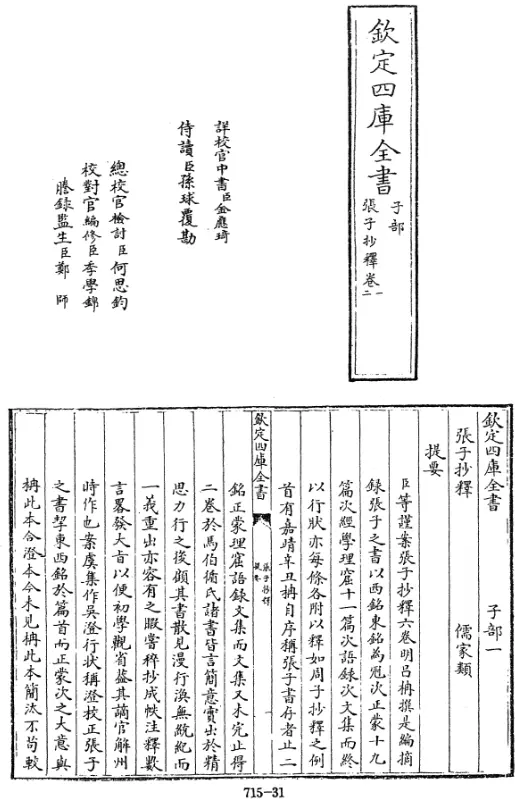 欽定四庫全書
子部
張子抄釋卷一
二
詳校官中書臣金應琦
侍讀臣孫球覆勘
總校官檢討臣何思鈞
校對官編修臣季學錦
謄錄監生臣鄭師
欽定四庫全書 子部一
張子抄釋 儒家類
提要
臣等謹案張子抄釋六卷明呂柟撰是編摘
錄張子之書以西銘東銘為冠次正蒙十九
篇次經學理窟十一篇次語錄次文集而終
以行狀亦每條各附以釋如周子抄釋之例
首有嘉靖辛丑柟自序稱張子書存者止二
欽定四庫全書
張子抄釋
提要
銘正蒙理窟語錄文集而文集又未完止得
二卷於馬伯循氏諸書皆言簡意實出於精
思力行之後顧其書散見漫行渙無統紀而
一義重出亦容有之暇嘗稡抄成帙注釋數
言畧發大旨以便初學觀省葢其謫官解州
時作也案虞集作吳澄行狀稱澄校正張子
之書挈東西銘於篇首而正蒙次之大意與
柟此本合澄本今未見柟此本簡汰不苟較
715-31